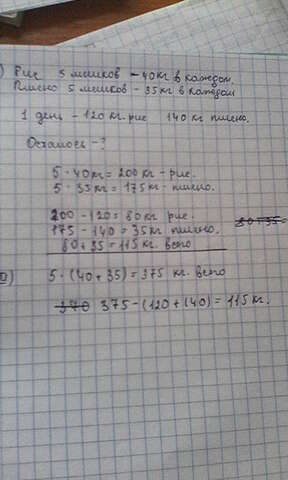 ) Рис 5 мешков - 40 кг в каждом.
Пшено 5 мешков - 35 кг в каждом
1 день - 120 кг. рис 140 кг пшено.
Осталось - ?
5 · 40 кг = 200 кг - рис.
5 · 35 кг = 175 кг - пшено.
200 - 120 = 80 кг рис.
175 - 140 = 35 кг пшено.
80 + 35 = 115 кг. всего
80+35=
II) 5 · (40 + 35) = 375 кг. всего
370 375 - (120 + (40) = 115 кг.